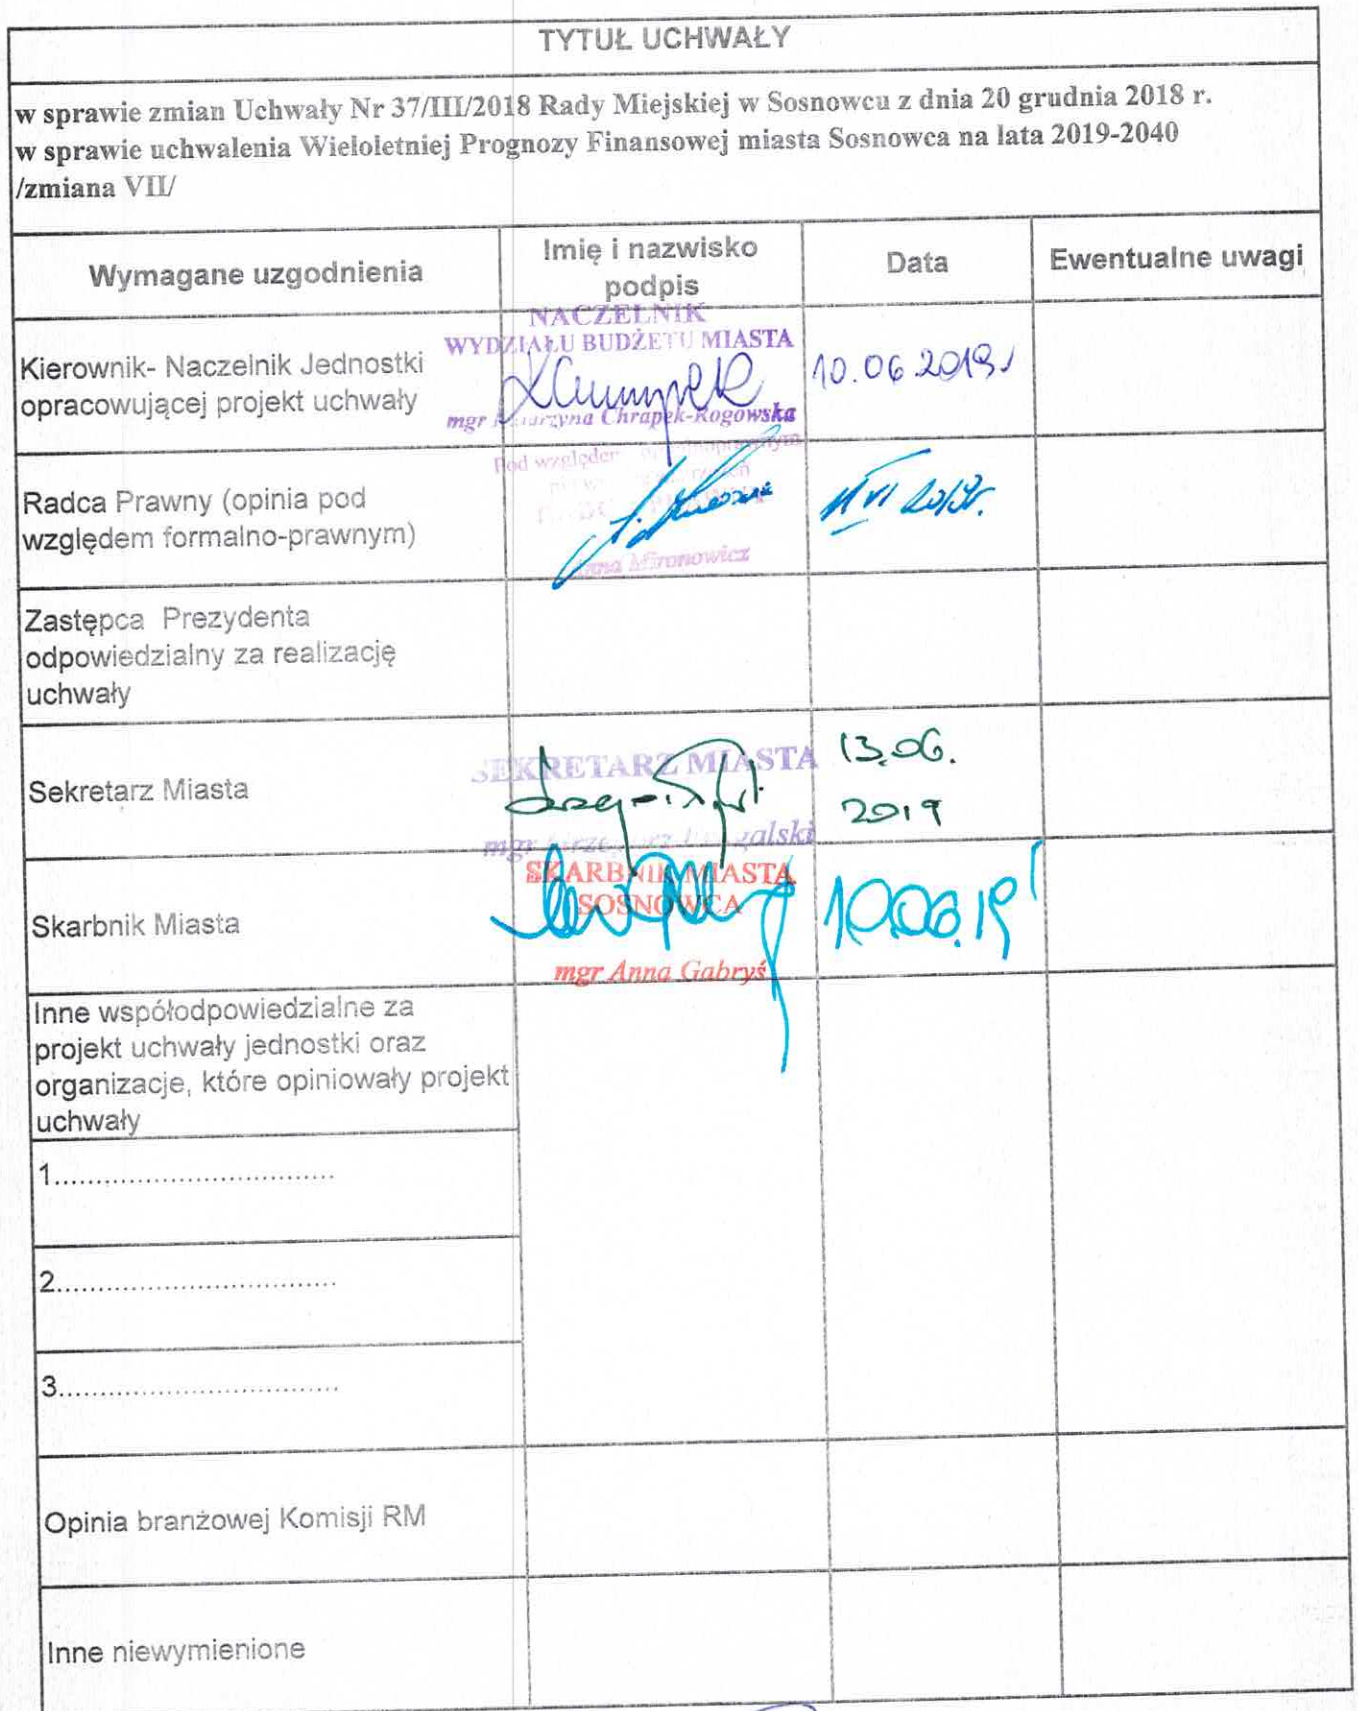 TYTUŁ UCHWAŁY
w sprawie zmian Uchwały Nr 37/III/2018 Rady Miejskiej w Sosnowcu z dnia 20 grudnia 2018 r.
w sprawie uchwalenia Wieloletniej Prognozy Finansowej miasta Sosnowca na lata 2019-2040
/zmiana VII/
Wymagane uzgodnienia
Imię i nazwisko
podpis
Data
Ewentualne uwagi
Kierownik- Naczelnik Jednostki
opracowującej projekt uchwały
NACZELNIK
WYDZIAŁU BUDŻETU MIASTA
mgr Katarzyna Chrapek-Rogowska
10.06.2019r
Radca Prawny (opinia pod
względem formalno-prawnym)
Pod względem
Anna Mironowicz
11 VI 2019r.
Zastępca Prezydenta
odpowiedzialny za realizację
uchwały
Sekretarz Miasta
SEKRETARZ MIASTA
mgr
13.06.
2019
Skarbnik Miasta
SKARBNIK MIASTA
SOSNOWCA
mgr Anna Gabryś
10.06.19r
Inne współodpowiedzialne za
projekt uchwały jednostki oraz
organizacje, które opiniowały projekt
uchwały
1.................................
2.................................
3.................................
Opinia branżowej Komisji RM
Inne niewymienione